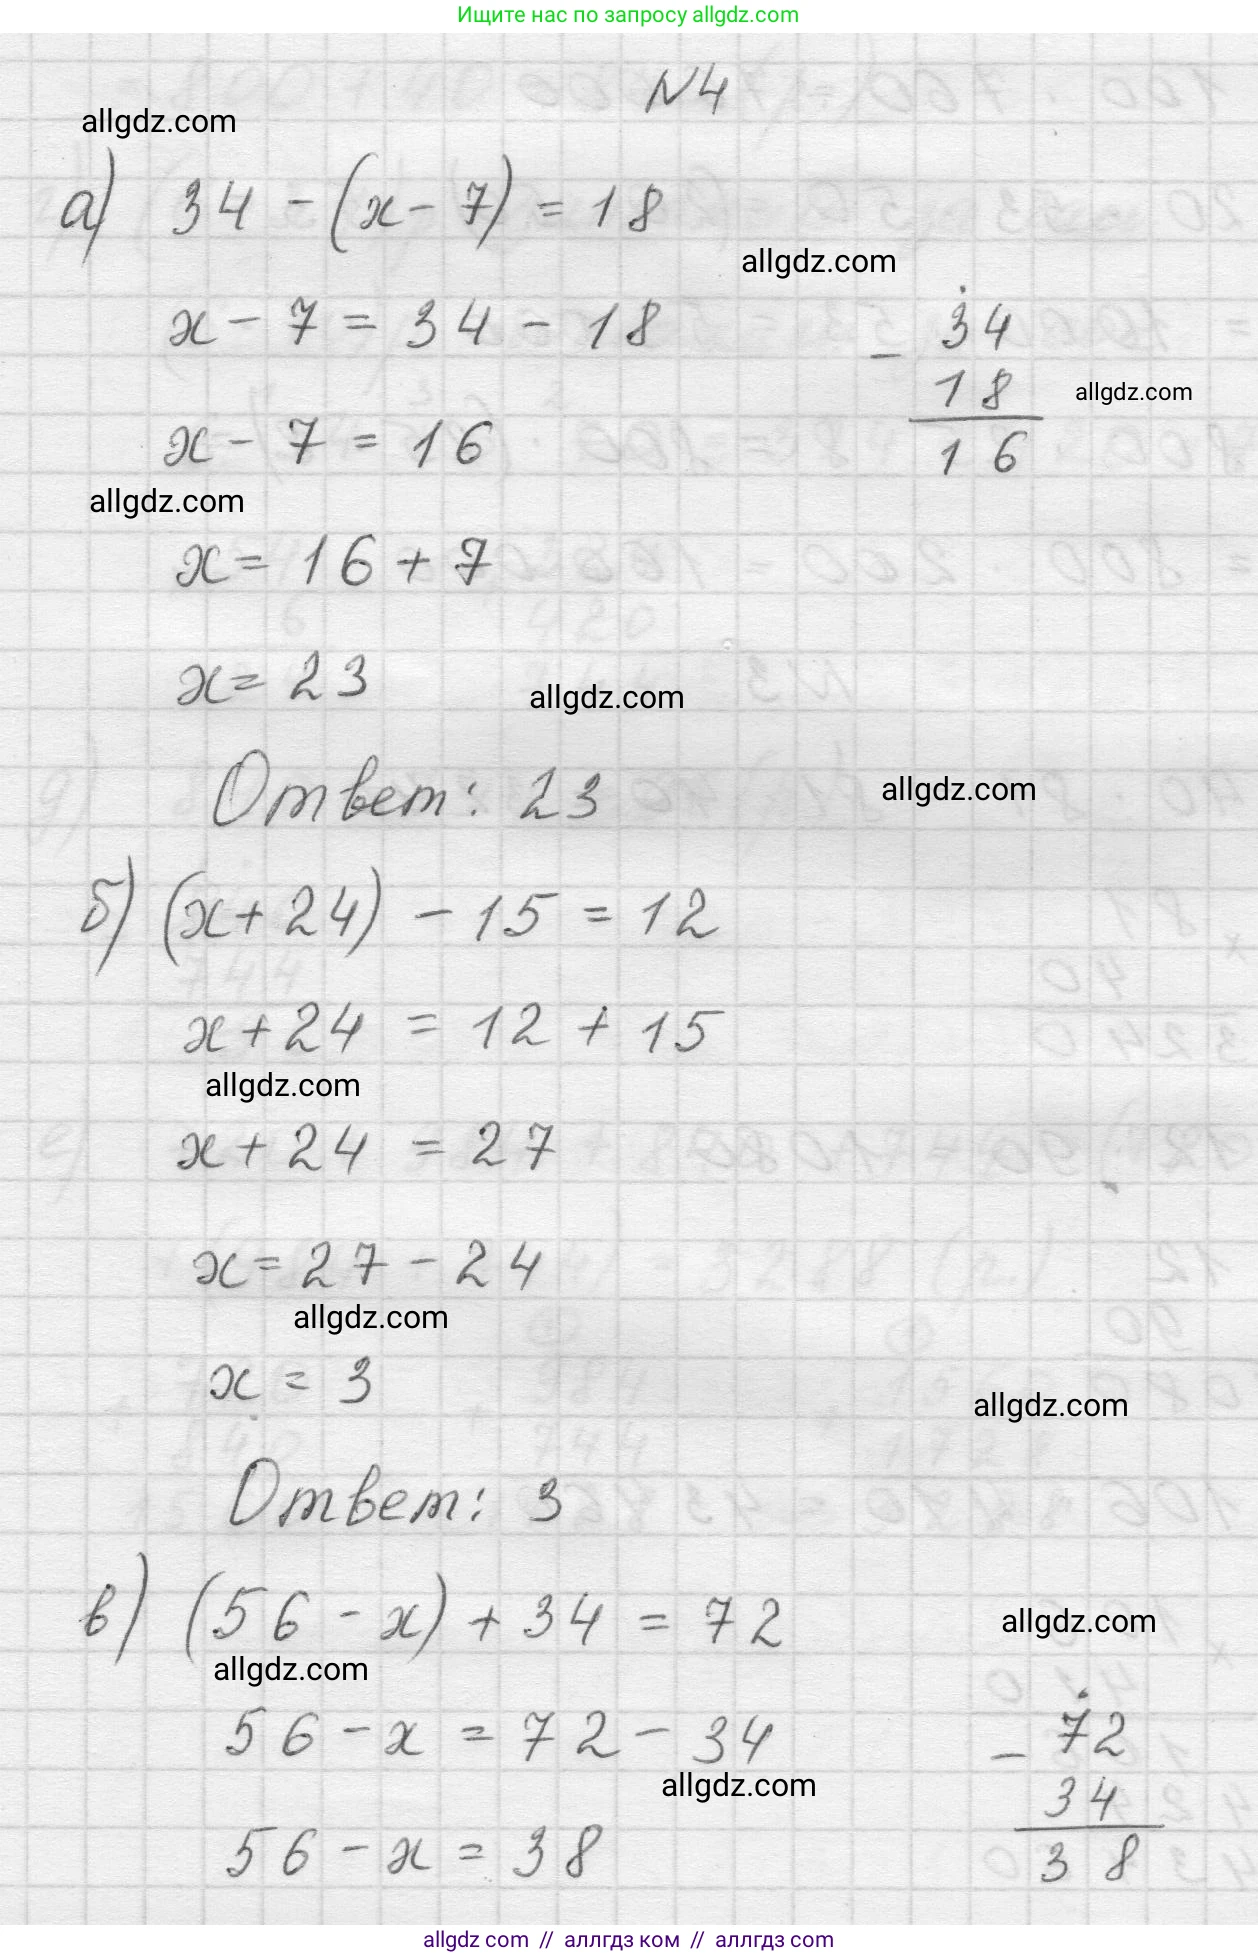 Ищите нас по запросу allgdz.com
N4
allgdz.com
а) 34 - (x - 7) = 18
allgdz.com
x - 7 = 34 - 18
- 34
18
allgdz.com
16
x - 7 = 16
allgdz.com
x = 16 + 7
x = 23
allgdz.com
Ответ: 23
allgdz.com
б) (x + 24) - 15 = 12
x + 24 = 12 + 15
allgdz.com
x + 24 = 27
x = 27 - 24
allgdz.com
x = 3
allgdz.com
Ответ: 3
в) (56 - x) + 34 = 72
allgdz.com
allgdz.com
56 - x = 72 - 34
- 72
34
38
allgdz.com
56 - x = 38
allgdz.com // аллгдз ком // аллгдз.com